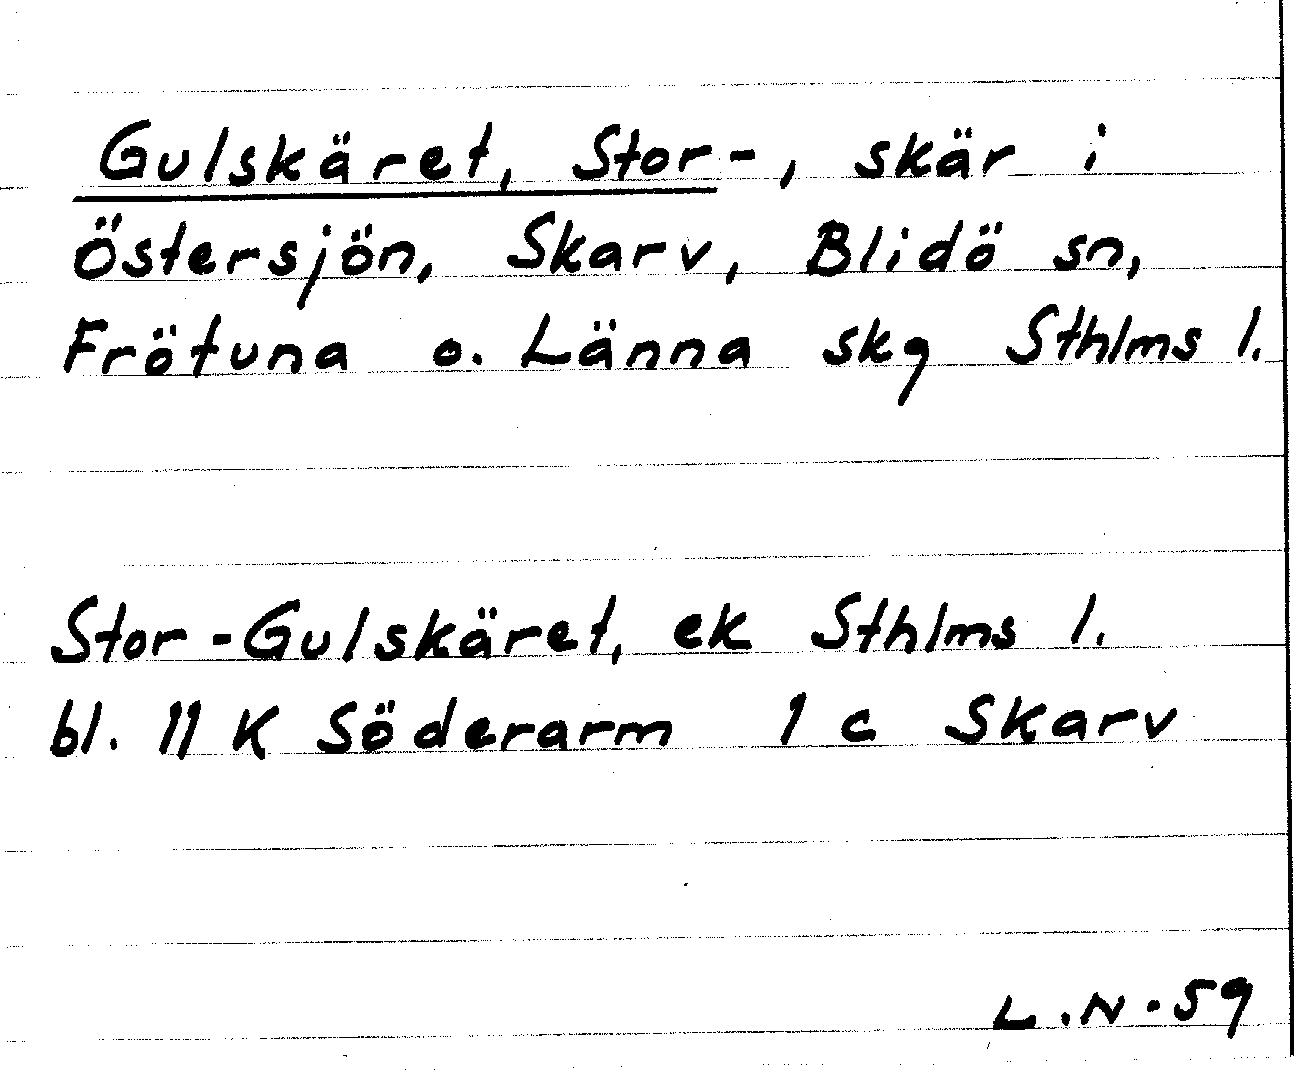 Gulskäret, Stor-, skär i
Östersjön, Skarv, Blidö sn,
Frötuna o. Länna skg Sthlms l.
Stor-Gulskäret, ek Sthlms l.
bl. 11 K Söderarm 1 c Skarv
L.N.59